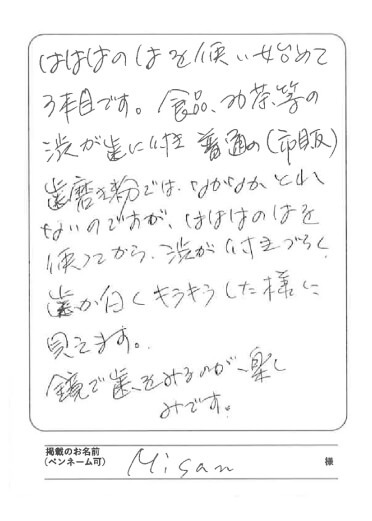 はははのはを使い始めて
3本目です。食品、お茶等の
渋が歯に付き普通の(市販)
歯磨き粉では、なかなかとれ
ないのですが、はははのはを
使ってから、渋が付きづらく
歯が白くキラキラした様に
見えます。
鏡で歯をみるのが、楽し
みです。
掲載のお名前
(ペンネーム可) Misan 様